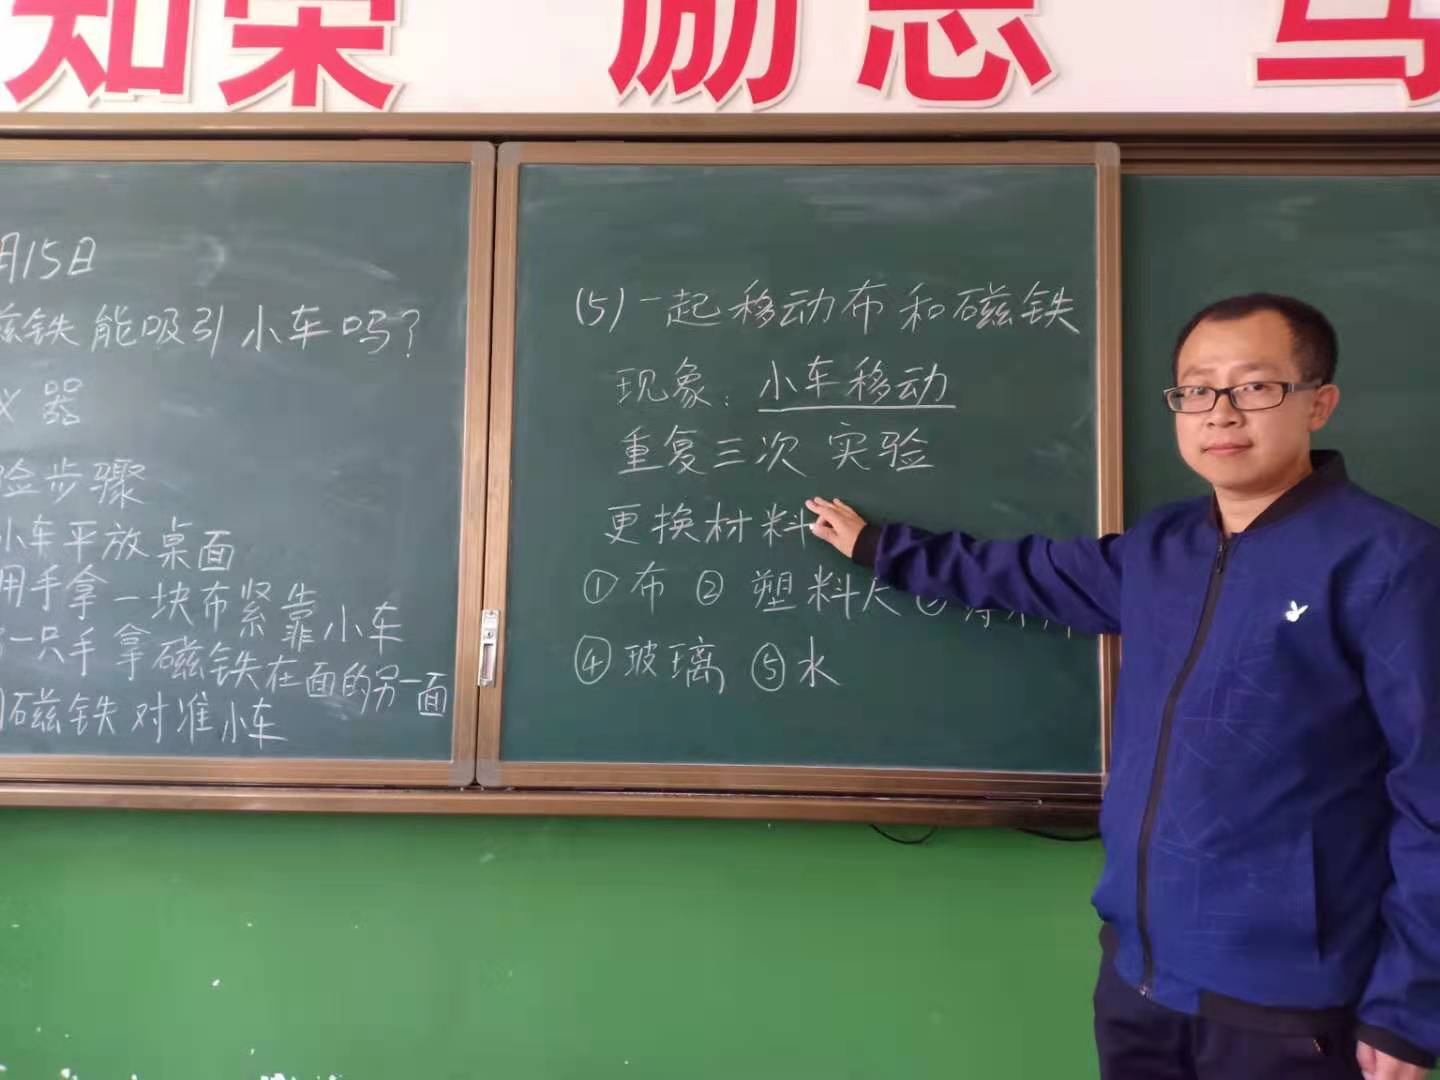 知荣 励志
月15日
磁铁能吸引小车吗?
仪器
验步骤
小车平放桌面
用手拿一块布紧靠小车
另一只手拿磁铁在面的另一面
磁铁对准小车
(5)一起移动布和磁铁
现象:小车移动
重复三次实验
更换材料
①布 ②塑料尺
④玻璃 ⑤水